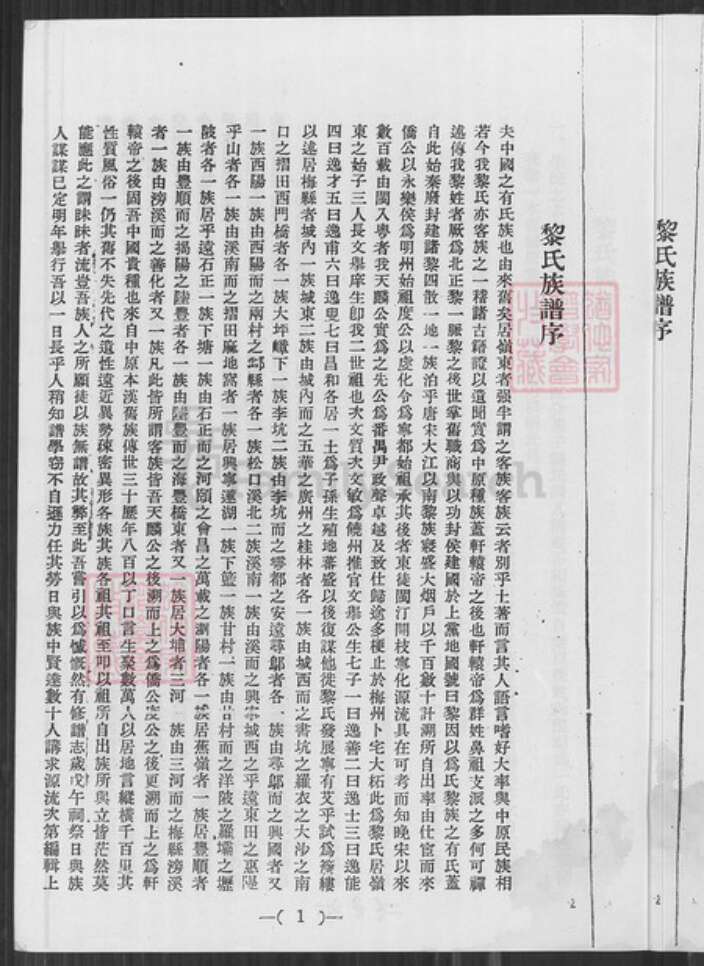 黎氏族譜序
黎氏族譜序
夫中國之有氏族也由來舊矣居嶺東者强半謂之客族客族云者別乎土著而言其人語言嗜好大率與中原民族相
若今我黎氏亦客族之一稽諸古籍證以遺聞實爲中原種族蓋軒轅帝之後也軒轅帝爲群姓鼻祖支派之多何可殫
述傳我黎姓者厥爲北正黎一脈黎之後世掌舊職商與以功封侯建國於上黨地國號曰黎因以爲氏黎族之有氏蓋
自此始秦廢封建諸黎四散一地一族洎乎唐宋大江以南黎族寖盛大烟戶以千百數十計溯所自出率由仕宦而來
僑公以永樂侯爲明州始祖度公以虔化令爲寧都始祖承其後者東徙閩汀開枝寧化源流具在可考而知晚宋以來
數百載由閩入粤者我天麟公實爲之先公爲番禺尹政聲卓越及致仕歸途多梗止於梅州卜宅大柘此爲黎氏居嶺
東之始子三人長文舉庠生卽我二世祖也次文質次文敏爲饒州推官文舉公生七子一曰逸善二曰逸士三曰逸能
四曰逸才五曰逸甫六曰逸叟七曰昌和各居一土爲子孫生殖地蕃盛以後復謀他徙黎氏發展寧有艾乎試爲覼縷
以述居梅縣者城內一族城東二族由城內而之五華之廣州之桂林者各一族由城西而之書坑之羅衣之大沙之南
口之摺田西門橋者各一族大坪嶂下一族李坑二族由李坑而之雩都之安遠尋鄔者各一族由尋鄔而之興國者又
一族西陽一族由西陽而之兩村之鄠縣者各一族松口溪北二族溪南一族由溪而之興寧城西之乎遠東田之惠陽
乎山者各一族由溪南而之摺田麻地窩者一族居興寧蓮湖一族下籃一族甘村一族由甘村而之洋陂之羅壩之壢
陂者各一族居乎遠石正一族下塘一族由石正而之河頤之會昌之萬載之瀏陽者各一族居蕉嶺者一族居豐順者
一族由豐順而之揭陽之陸豐者各一族由陸豐而之海豐橋東者又一族居大埔者三河一族由三河而之梅縣滂溪
者一族由滂溪而之善化者又一族凡此皆所謂客族皆吾天麟公之後溯而上之爲僑公度公之後更溯而上之爲軒
轅帝之後固吾中國貴種也來自中原本漢舊族傳世三十歷年八百以丁口言生聚數萬人以居地言縱橫千百里其
性質風俗一仍其舊不失先代之遺性遠近異勢疎密異形各族其族各祖其祖至叩以祖所自出族所與立皆茫然莫
能應此之謂昧昧者流豈吾族人之所願徒以族無譜故其弊至此吾嘗引以爲憾慨然有修譜志歲戊午祠祭日與族
人謀謀已定明年舉行吾以一日長乎人稍知譜學窃不自逃力任其勞日與族中賢達數十人講求源流次第編輯上
—( 1 )—